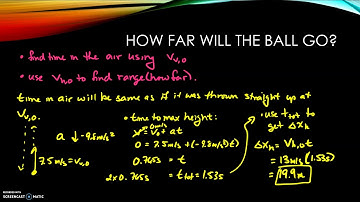 HOW FAR WILL THE BALL GO?
• find time in the air using Vv,o
• use Vh,o to find range (how far).
time in air will be same as if it was thrown straight up at
Vv,o.
a ↓ -9.8m/s²
7.5m/s = Vv,o
• time to max height:
0m/s
V = Vo + at
0 = 7.5m/s + (-9.8m/s²)(t)
0.765s = t
2 x 0.765s = t tot = 1.53s
• use t tot to
get Δxh
Δxh = Vh,o t
= 13m/s (1.53s)
= 19.9m
RECORDED WITH
SCREENCAST-O-MATIC